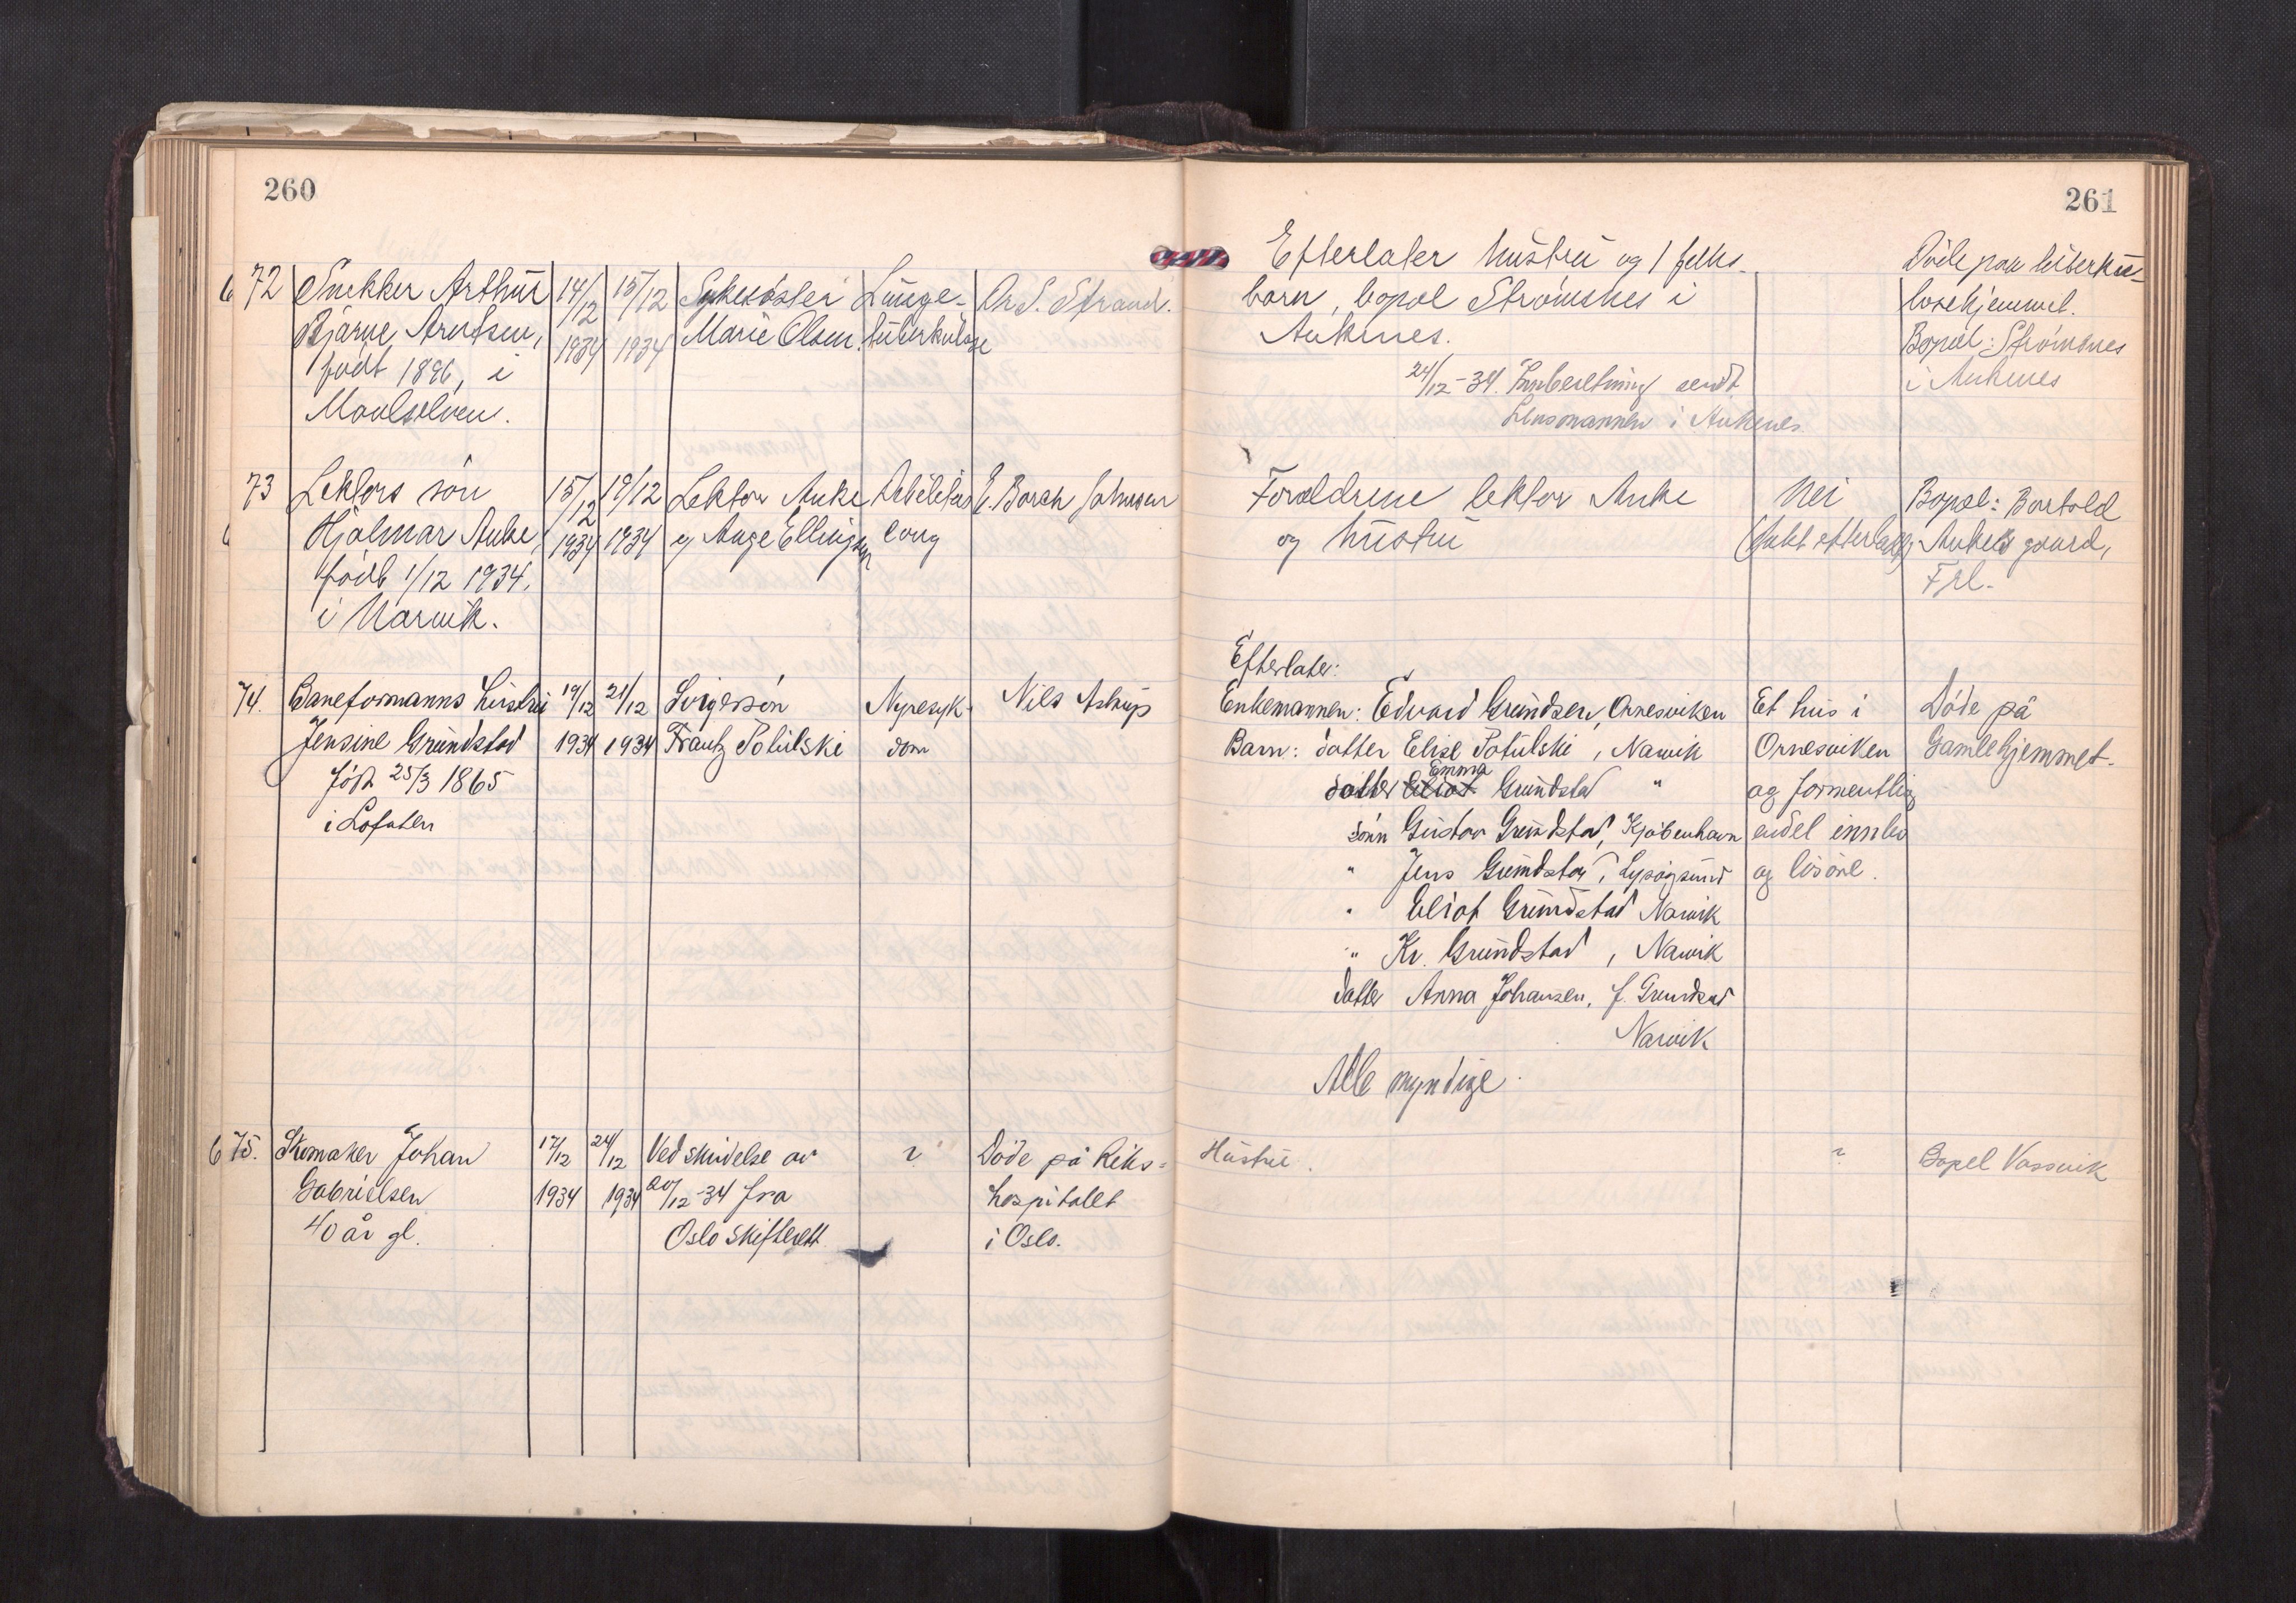 260
72
Snekker Arthur
Bjarne Arntsen,
født 1896, i
Maalselven.
14/12
1934
15/12
1934
Sykesøster
Marie Olsen.
Lunge-
tuberkulose
Dr S. Strand.
73
Lektors søn
Hjalmar Anke,
født 1/12 1934.
i Narvik.
15/12
1934
19/12
1934
Lektor Anke
og Aage Ellingsen
E. Borch Johnsen
74.
Baneformanns hustru
Jensine Grundstad
født 25/3 1865
i Lofoten
19/12
1934
21/12
1934
Svigersøn
Frantz Potulski
Nyresyk-
dom
Nils Astrup
6 75.
Skomaker Johan
Gabrielsen
40 år gl.
17/12
1934
24/12
1934
Ved skrivelse av
20/12-34 fra
Oslo skifterett
?
Døde på Riks-
hospitalet
i Oslo.
261
Efterlater hustru og 1 felles-
barn, bopæl Strømsnes i
Ankenes.
24/12-34. Innberetning sendt
Lensmannen i Ankenes.
Døde paa tuberku-
losehjemmet.
Bopæl: Strømsnes
i Ankenes
Foreldrene lektor Anke
og hustru
Nei
Bopæl: Bertold
Ankes gaard,
Frl.
Efterlater:
Enkemannen: Edvard Grundsen, Ornesviken
Barn: datter Elise Potulski, Narvik
datter Eliot Emma Grundstad "
sønn Gustav Grundstad, Kjøbenhavn
" Jens Grundstad, Lysøysund
" Eliot Grundstad Narvik
" Kr. Grundstad, Narvik
datter Anna Johansen, f. Grundstad
Narvik
Alle myndige.
Et hus i
Ornesviken
og formentlig
endel innbo
og løsøre.
Døde på
Gamlehjemmet.
Hustru.
?
Bopel Vassvik